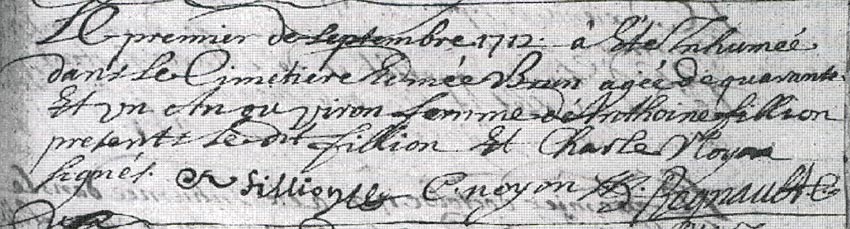 Le premier de septembre 1712. à Eté Inhumée
dans le Cimetiere Aimée Brun agée de quarante
Et un an ou viron femme de Anthoine fillion
présents ledit fillion Et Charle Noyon
signés. fillion C. noyon Regnault C